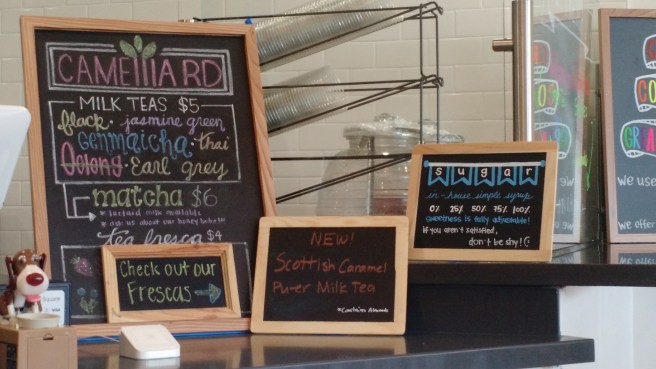 CAMELLIARD
MILK TEAS $5
black · jasmine green
Genmaicha · thai
Oolong · Earl grey
matcha $6
* lactaid milk available
* ask us about our honey boba!!!
tea fresca $4
Check out our
Frescas
NEW!
Scottish Caramel
Pu-er Milk Tea
*Contains Almonds
sugar
in-house simple syrup
0% 25% 50% 75% 100%
sweetness is fully adjustable!
if you aren't satisfied,
don't be shy! (:
Square
We use
We offer